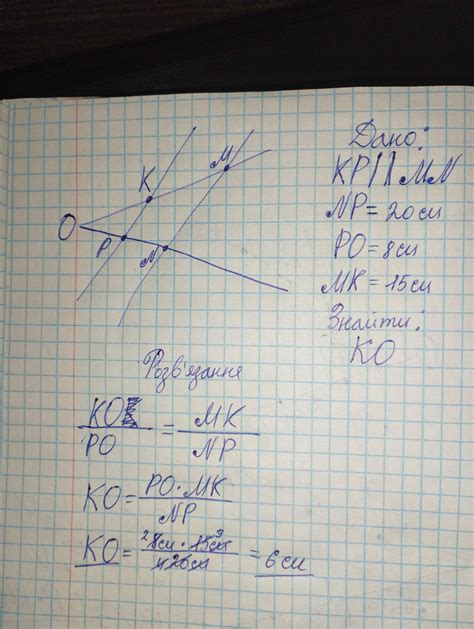 Дано:
KP||MN
NP = 20см
PO = 8см
MK = 15см
Знайти:
KO
O
K
M
P
N
Розв'язання
KO/PO = MK/NP
KO = PO·MK/NP
KO = 8см·15см/20см = 6см